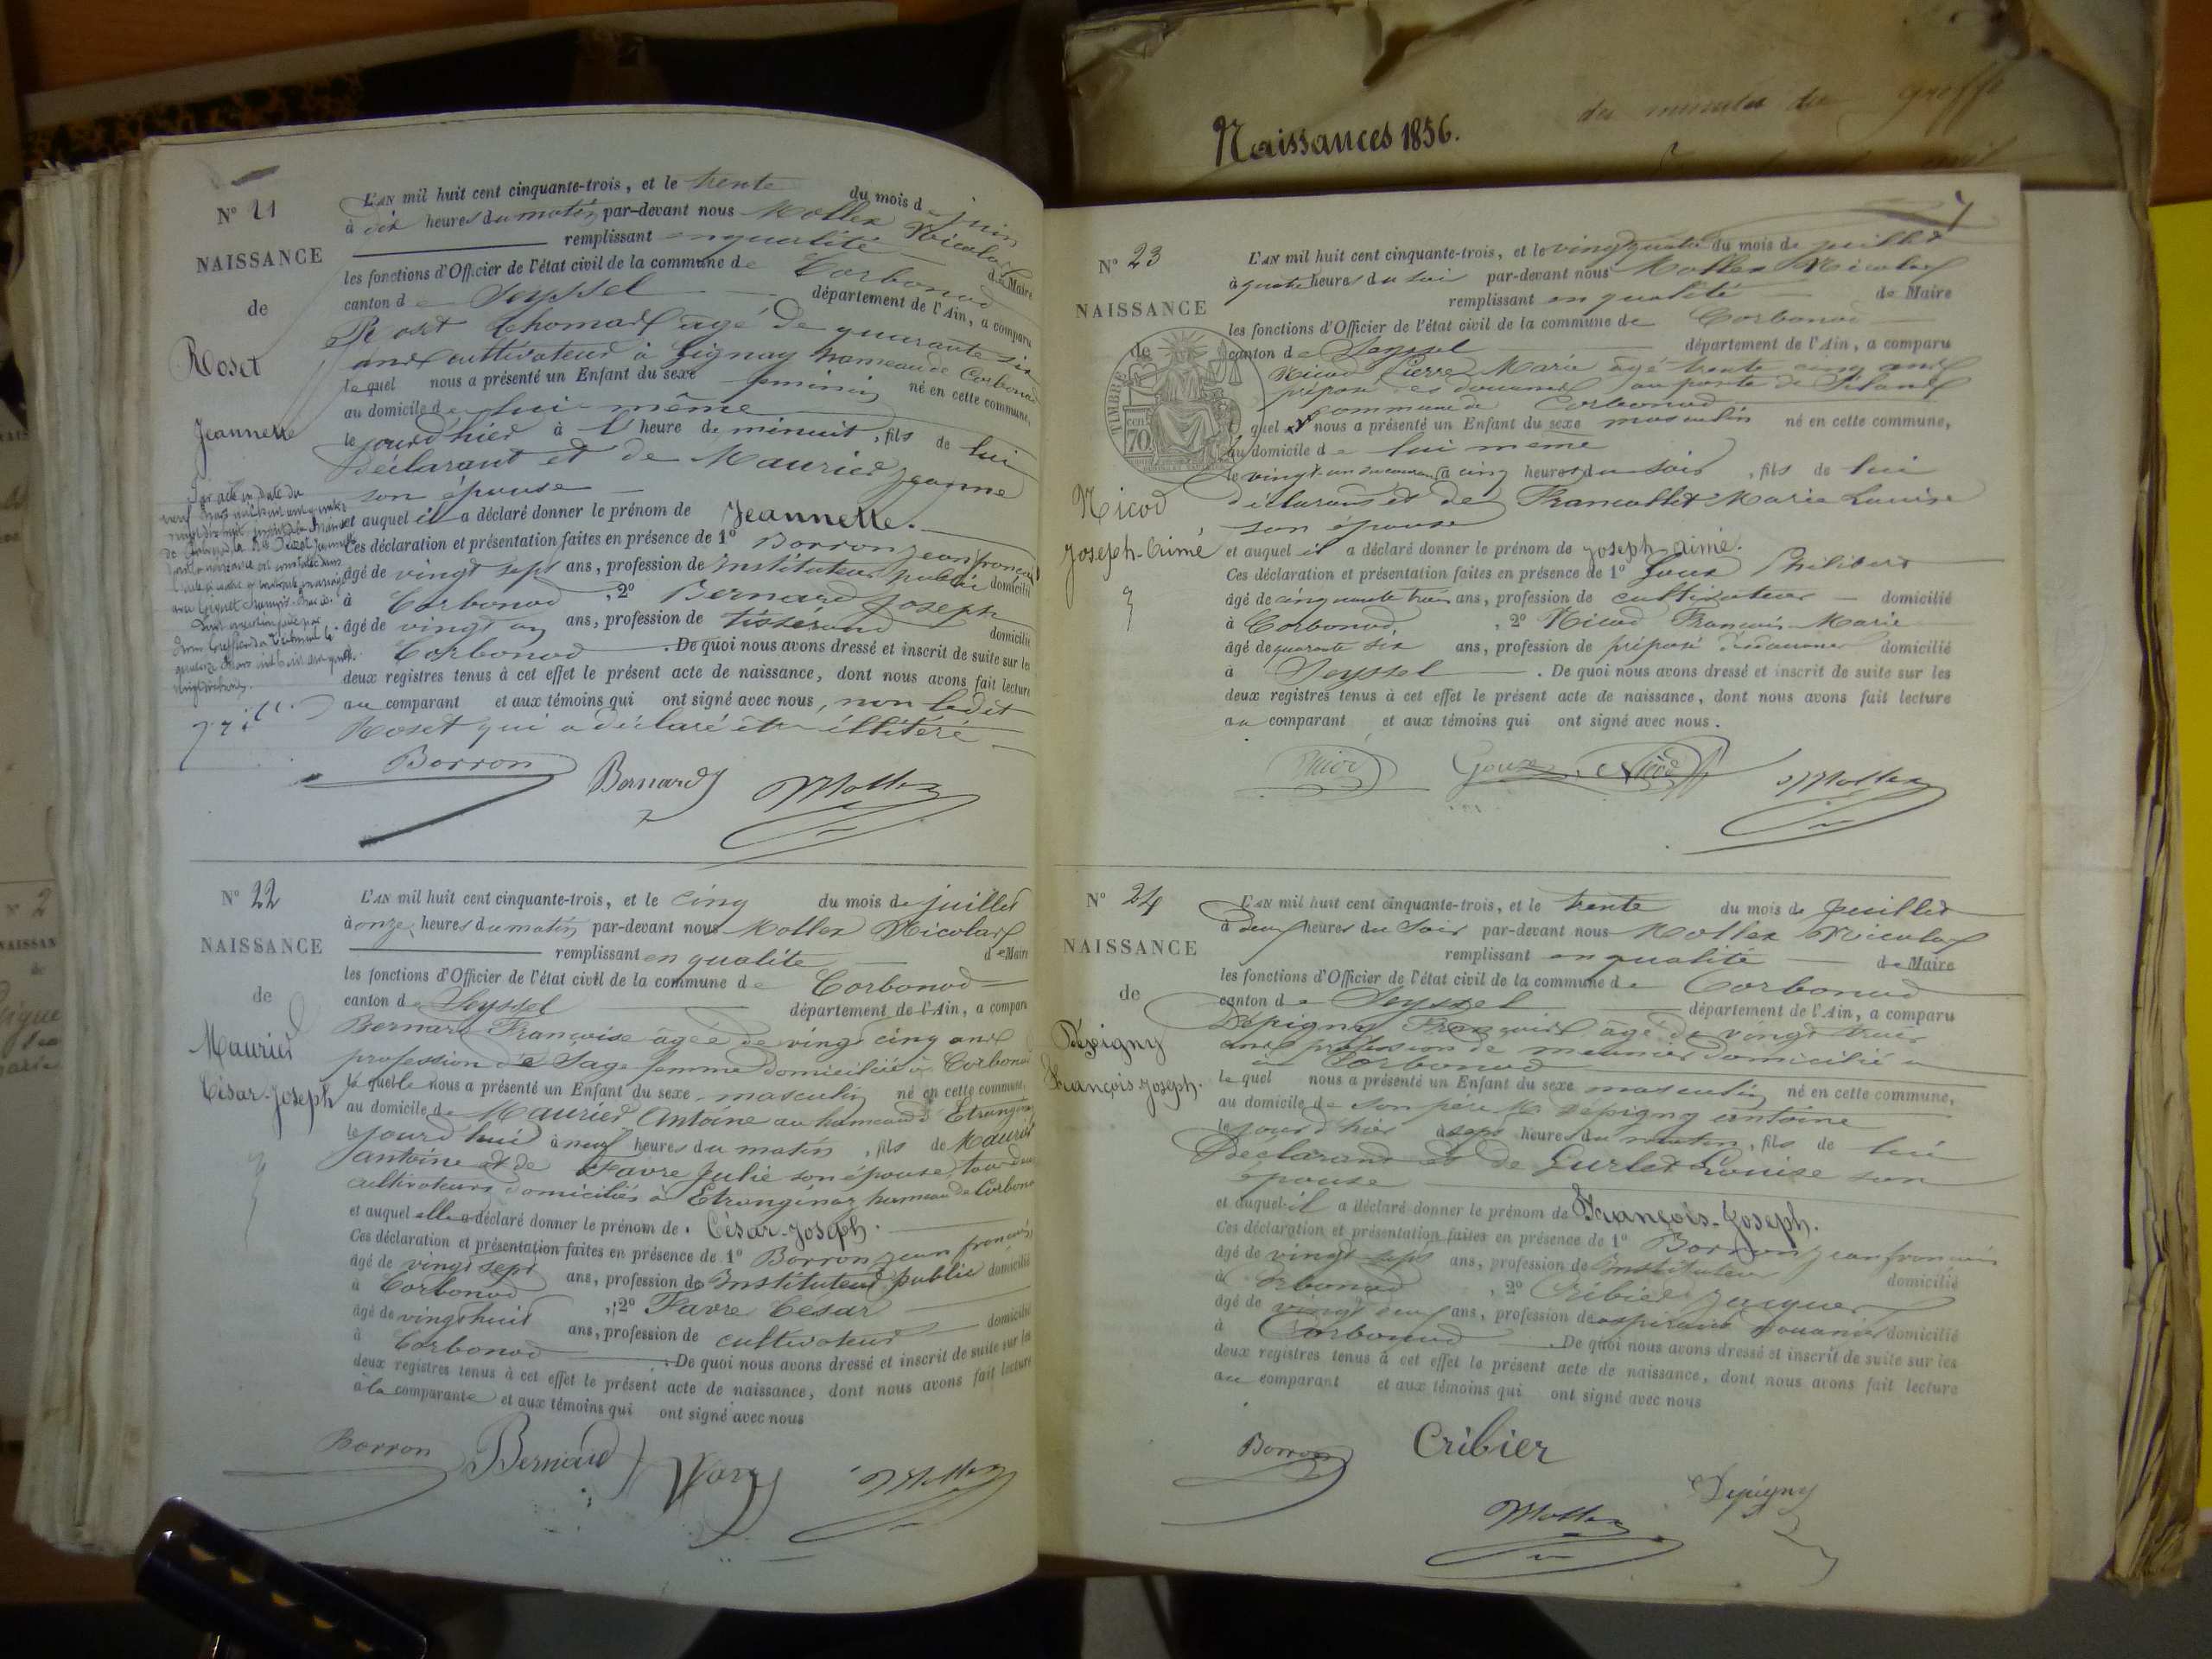 Naissances 1856.
des minutes du greffe
N° 21
NAISSANCE
de
Roset
Jeannette
L'AN mil huit cent cinquante-trois, et le trente du mois de juin
à dix heures du matin par-devant nous Mollex Nicolas
remplissant en qualité de Maire
les fonctions d'Officier de l'état civil de la commune de Corbonod
canton de Seyssel département de l'Ain, a comparu
Roset Thomas âgé de quarante six
ans cultivateur à Gignay hameau de Corbonod
lequel nous a présenté un Enfant du sexe feminin né en cette commune,
au domicile de lui même
le jourd'hier à heure de minuit, fils de lui
déclarant et de Maurier Jeanne
son épouse
et auquel il a déclaré donner le prénom de Jeannette.
Ces déclaration et présentation faites en présence de 1° Borron jean françois
âgé de vingt sept ans, profession de Instituteur public domicilié
à Corbonod, 2° Bernard Joseph
âgé de vingt un ans, profession de tisserand domicilié
à Corbonod. De quoi nous avons dressé et inscrit de suite sur les
deux registres tenus à cet effet le présent acte de naissance, dont nous avons fait lecture
au comparant et aux témoins qui ont signé avec nous, non ledit
Roset qui a déclaré être illitéré
Borron Bernard Mollex
N° 22
NAISSANCE
de
Maurier
César-Joseph
L'AN mil huit cent cinquante-trois, et le cinq du mois de juillet
à onze heures du matin par-devant nous Mollex Nicolas
remplissant en qualité de Maire
les fonctions d'Officier de l'état civil de la commune de Corbonod
canton de Seyssel département de l'Ain, a comparu
Bernard Françoise âgée de vingt cinq ans
profession de Sage femme domiciliée à Corbonod
lequelle nous a présenté un Enfant du sexe masculin né en cette commune,
au domicile de Maurier Antoine au hameau d'Etranginaz
le jourd'hui à neuf heures du matin, fils de Maurier
antoine et de Favre Julie son épouse, tous deux
cultivateurs domiciliés à Etranginaz hameau de Corbonod
et auquel elle a déclaré donner le prénom de César-Joseph.
Ces déclaration et présentation faites en présence de 1° Borron jean françois
âgé de vingt sept ans, profession de Instituteur public domicilié
à Corbonod, 2° Favre César
âgé de vingt huit ans, profession de cultivateur domicilié
à Corbonod. De quoi nous avons dressé et inscrit de suite sur les
deux registres tenus à cet effet le présent acte de naissance, dont nous avons fait lecture
à la comparante et aux témoins qui ont signé avec nous
Borron Bernard Mollex
7
N° 23
NAISSANCE
de
TIMBRE
70
Nicod
Joseph-Aimé
L'AN mil huit cent cinquante-trois, et le vingt quatre du mois de juillet
à quatre heures du soir par-devant nous Mollex Nicolas
remplissant en qualité de Maire
les fonctions d'Officier de l'état civil de la commune de Corbonod
canton de Seyssel département de l'Ain, a comparu
Nicod Pierre Marie âgé trente cinq ans
préposé des douanes au poste de
commune de Corbonod
lequel nous a présenté un Enfant du sexe masculin né en cette commune,
au domicile de lui même
le vingt un du courant à cinq heures du soir, fils de lui
déclarant et de Francallet Marie Louise
son épouse
et auquel il a déclaré donner le prénom de Joseph-aimé.
Ces déclaration et présentation faites en présence de 1° Goux Philibert
âgé de cinquante trois ans, profession de cultivateur domicilié
à Corbonod, 2° Nicod François Marie
âgé de quarante six ans, profession de préposé des douanes domicilié
à Seyssel. De quoi nous avons dressé et inscrit de suite sur les
deux registres tenus à cet effet le présent acte de naissance, dont nous avons fait lecture
au comparant et aux témoins qui ont signé avec nous.
Nicod Goux Nicod Mollex
N° 24
NAISSANCE
de
Dépigny
François Joseph.
L'AN mil huit cent cinquante-trois, et le trente du mois de Juillet
à deux heures du Soir par-devant nous Mollex Nicolas
remplissant en qualité de Maire
les fonctions d'Officier de l'état civil de la commune de Corbonod
canton de Seyssel département de l'Ain, a comparu
Dépigny François âgé de vingt trois
ans profession de meunier domicilié
à Corbonod
lequel nous a présenté un Enfant du sexe masculin né en cette commune,
au domicile de son père M. Dépigny antoine
le jourd'hier à sept heures du matin, fils de lui
Déclarant et de Gurlet Louise son
épouse
et auquel il a déclaré donner le prénom de François-Joseph.
Ces déclaration et présentation faites en présence de 1° Borron jean françois
âgé de vingt sept ans, profession de Instituteur domicilié
à Corbonod, 2° Cribier Jacques
âgé de vingt ans, profession de aspirant douanier domicilié
à Corbonod. De quoi nous avons dressé et inscrit de suite sur les
deux registres tenus à cet effet le présent acte de naissance, dont nous avons fait lecture
au comparant et aux témoins qui ont signé avec nous
Borron Cribier Depigny
Mollex